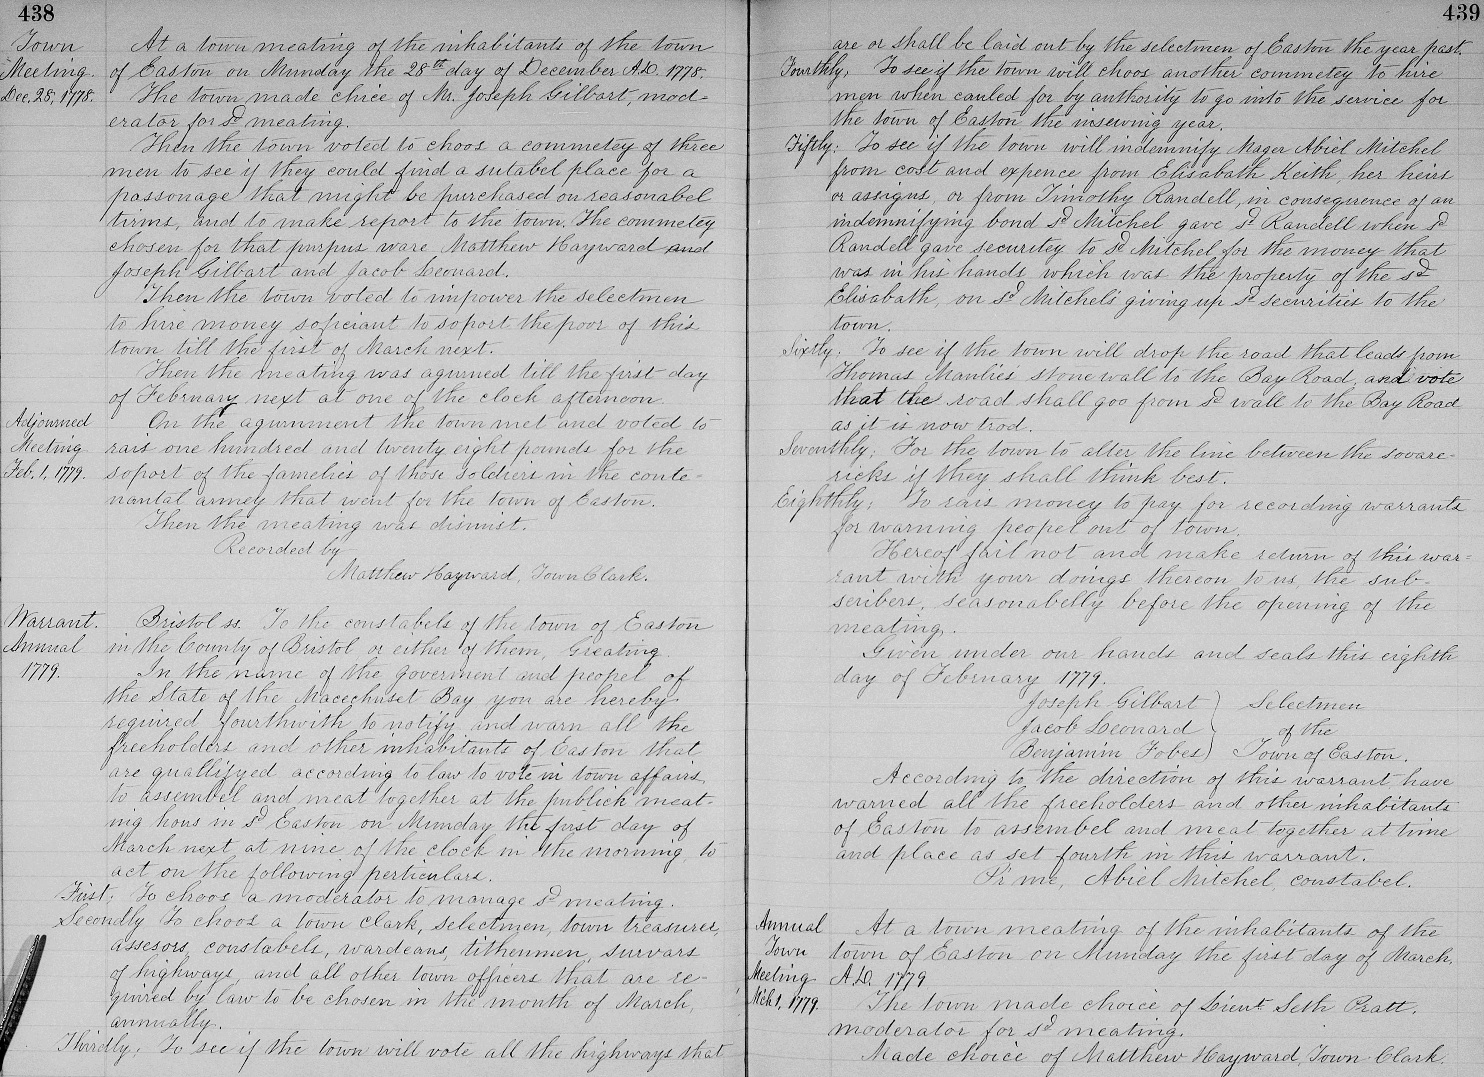 438
Town
Meeting.
Dec. 28, 1778.
At a town meating of the inhabitants of the town
of Easton on Munday the 28th day of December A.D. 1778.
The town made chice of Mr. Joseph Gilbart, mod-
erator for sd meating.
Then the town voted to choos a commetey of three
men to see if they could find a sutabel place for a
passonage that might be purchased on reasonabel
tirms, and to make report to the town. The commetey
chosen for that purpus ware Matthew Hayward and
Joseph Gilbart and Jacob Leonard.
Then the town voted to impower the selectmen
to hire money sofeciant to soport the poor of this
town till the first of March next.
Then the meating was agurned till the first day
of February next at one of the clock afternoon
Adjourned
Meeting
Feb. 1, 1779.
On the agurnment the town met and voted to
rais one hundred and twenty eight pounds for the
soport of the famelies of those soldiers in the conte-
nantal armey that went for the town of Easton.
Then the meating was dismist.
Recorded by
Matthew Hayward, Town Clark.
Warrant.
Annual
1779.
Bristol ss. To the constabels of the town of Easton
in the County of Bristol or either of them, Greating.
In the name of the goverment and peopel of
the State of the Macechuset Bay you are hereby
required fourthwith to notify and warn all the
freeholders and other inhabitants of Easton that
are quallifyed according to law to vote in town affairs
to assembel and meat together at the publick meat-
ing hous in sd Easton on Munday the first day of
March next at nine of the clock in the morning, to
act on the following perticulars.
First; To choos a moderator to manage sd meating.
Secondly To choos a town clark, selectmen, town treasurer,
assesors, constabels, wardeans, tithenmen, survars
of highways, and all other town officers that are re-
quired by law to be chosen in the month of March,
annually.
Thirdly; To see if the town will vote all the highways that
439
are or shall be laid out by the selectmen of Easton the year past.
Fourthly; To see if the town will choos another commetey to hire
men when cauled for by authority to go into the service for
the town of Easton the insewing year.
Fiftly: To see if the town will indemnify Mager Abiel Mitchel
from cost and expence from Elisabath Keith, her heirs
or assigns, or from Timothy Randell, in consequence of an
indemnifying bond sd Mitchel gave sd Randell when sd
Randell gave securitey to sd Mitchel for the money that
was in his hands which was the property of the sd
Elisabath, on sd Mitchel's giving up sd securities to the
town.
Sixtly: To see if the town will drop the road that leads from
Thomas Manlie's stone wall to the Bay Road, and vote
that the road shall goo from sd wall to the Bay Road
as it is now trod.
Seventhly; For the town to alter the line between the sovare-
ricks if they shall think best.
Eighthly; To rais money to pay for recording warrants
for warning peopel out of town.
Hereof fail not and make return of this war-
rant with your doings thereon to us, the sub-
scribers, seasonabelly before the opening of the
meating.
Given under our hands and seals this eighth
day of February 1779.
Joseph Gilbart
Jacob Leonard
Benjamin Fobes
Selectmen
of the
Town of Easton.
According to the direction of this warrant have
warned all the freeholders and other inhabitants
of Easton to assembel and meat together at time
and place as set fourth in this warrant.
Pr me, Abiel Mitchel, constabel.
Annual
Town
Meeting
Mch 1, 1779.
At a town meating of the inhabitants of the
town of Easton on Munday the first day of March,
A.D. 1779
The town made choice of Lieut Seth Pratt,
moderator for sd meating.
Made choice of Matthew Hayward, Town Clark.